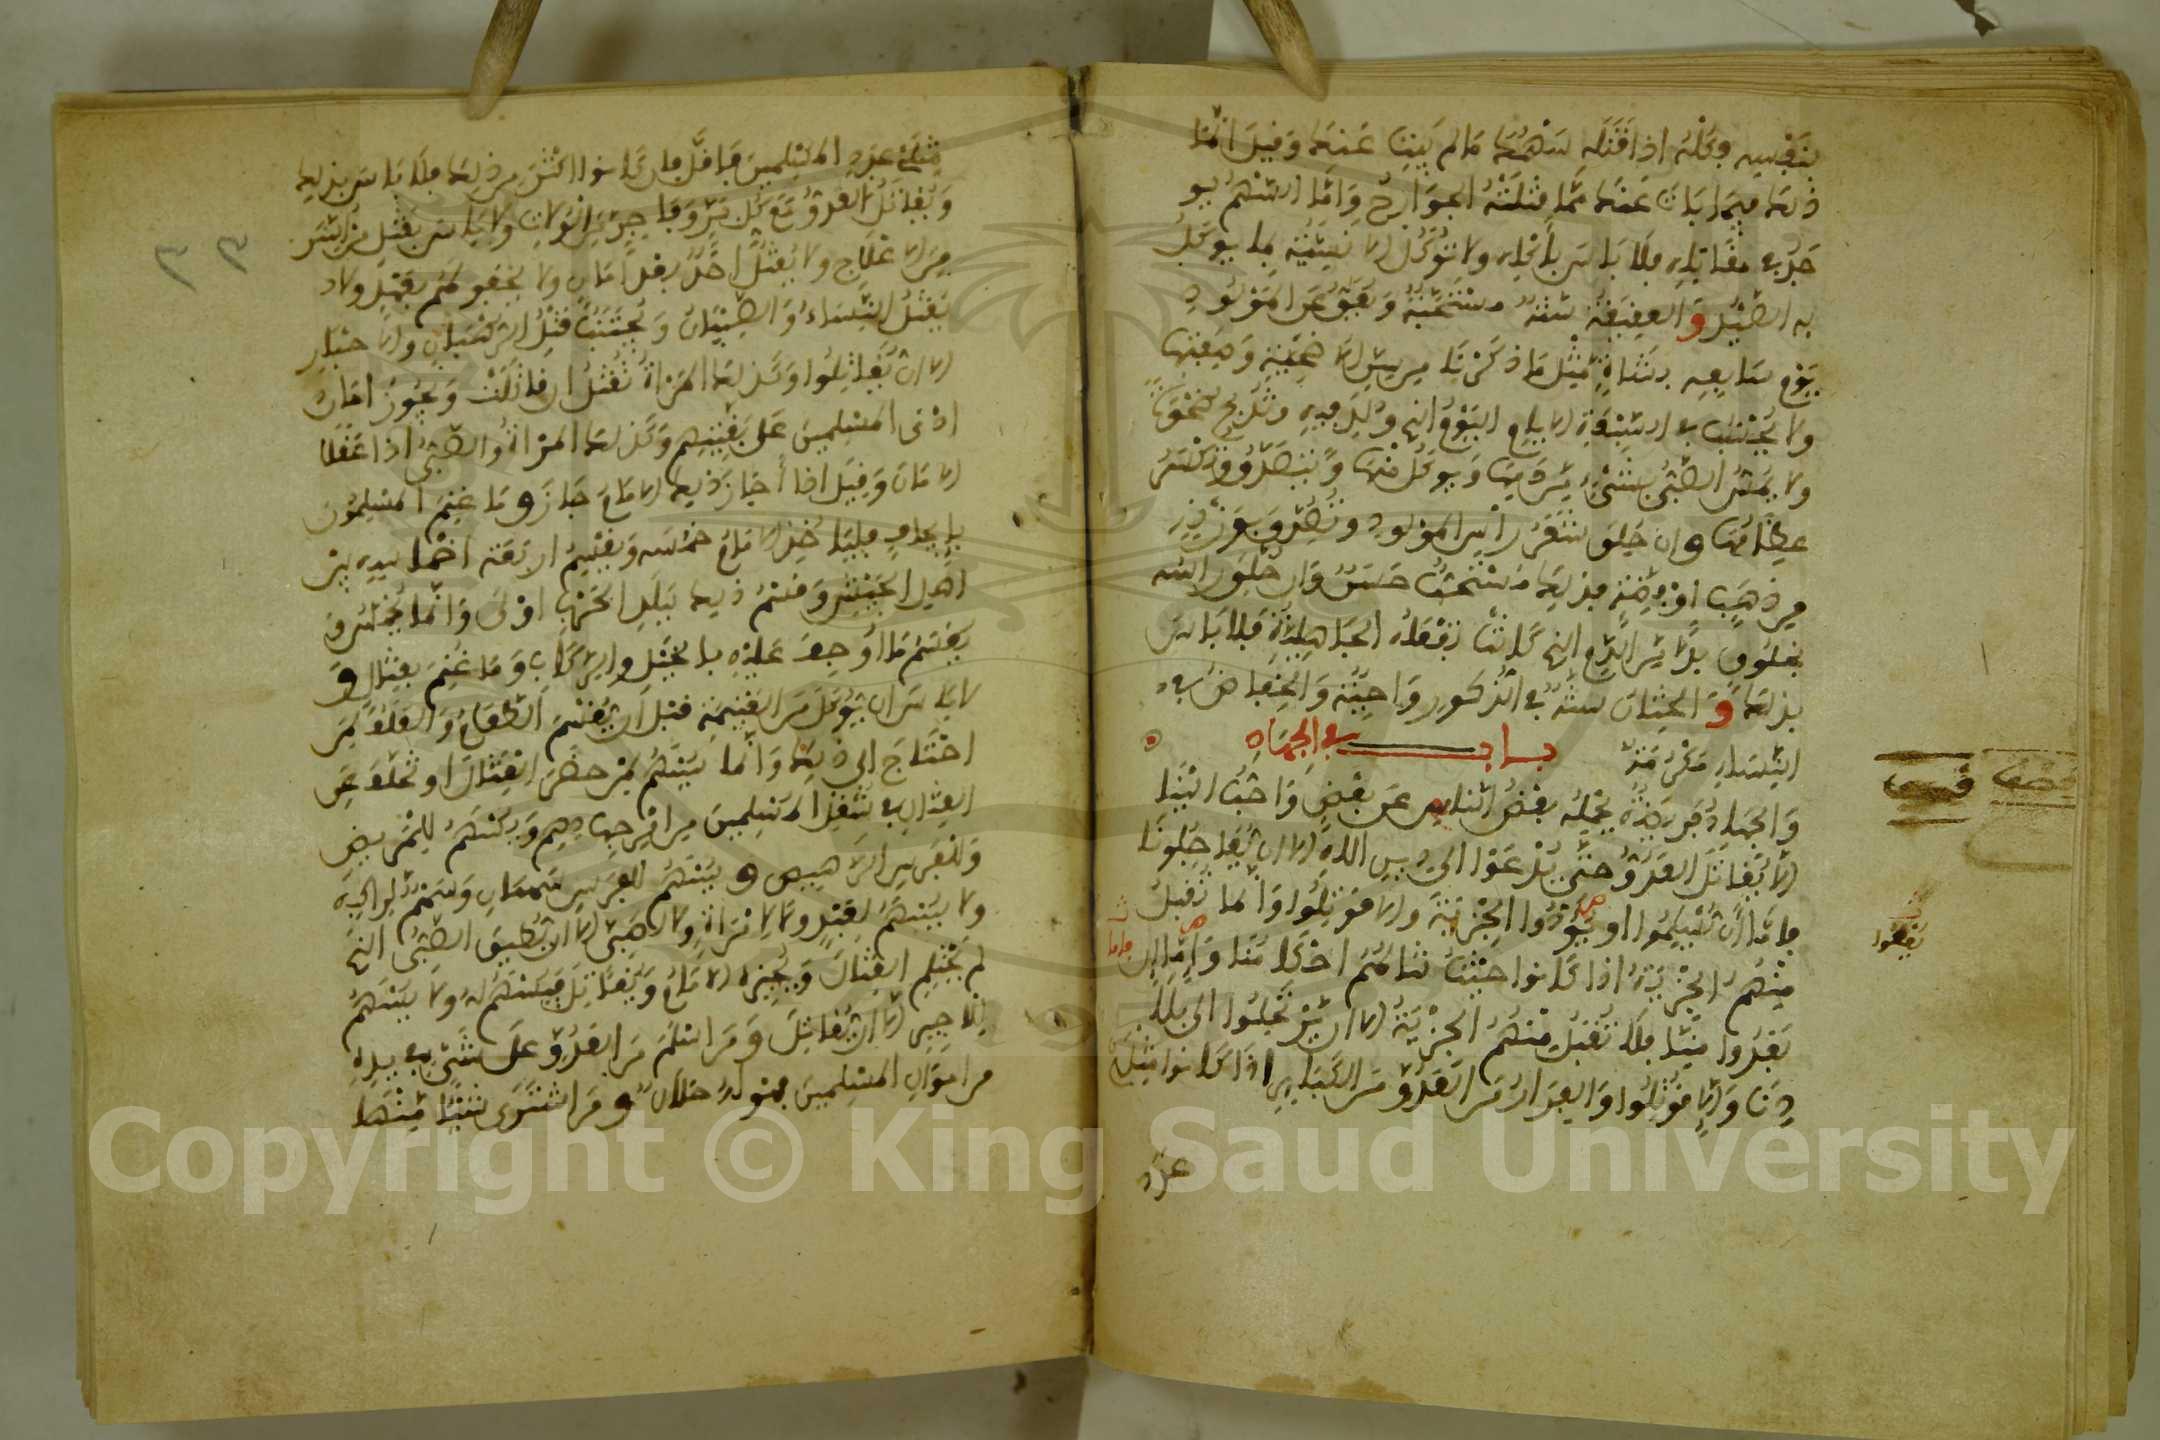 بنفسه وكله اذا قتله سهمك ما لم يبت عنك وقيل انما
ذلك فيما بات عنك مما قتلته الجوارح واما السهم يو
جد في مقاتله فلا باس باكله ولا توكل الانسية بما يوكل
به الصيد و العقيقة سنة مستحبة ويعق عن المولود
يوم سابعه بشاة مثل ما ذكرنا من سن الاضحية وصفتها
ولا يحسب في السبعة الايام اليوم الذي ولد فيه وتذبح ضحوة
ولا يمس الصبي بشيء من دمها ويوكل منها ويتصدق وتكسر
عظامها وان حلق شعر راس المولود وتصدق بوزنه
من ذهب او فضة فذلك مستحب حسن وان خلق راسه
بخلوق بدلا من الدم الذي كانت تفعله الجاهلية فلا باس
بذلك و الختان سنة في الذكور واجبة والخفاض في
النساء مكرمة باب في الجهاد
والجهاد فريضة يحمله بعض الناس عن بعض واحب الينا
الا يقاتل العدو حتى يدعوا الى دين الله الا ان يعاجلونا
فاما ان يسلموا او يؤدوا الجزية والا قوتلوا وانما تقبل
منهم الجزية اذا كانوا حيث تنالهم احكامنا واما ان
بعدوا منا فلا تقبل منهم الجزية الا ان يرتحلوا الى بلا
دنا والا قوتلوا والفرار من العدو من الكباير اذا كانوا مثلي
عدد
مثلي عدد المسلمين فاقل فان كانوا اكثر من ذلك فلا باس بذلك
ويقاتل العدو مع كل بر وفاجر من الولات ولا باس بقتل من اسر
من الاعلاج ولا يقتل احد بعد امان ولا يخفر لهم بعهد ولا
يقتل النساء والصبيان ويجتنب قتل الرهبان والاحبار
الا ان يقاتلوا وكذلك المراة تقتل ان قاتلت ويجوز امان
ادنى المسلمين على بقيتهم وكذلك المراة والصبي اذا عقلا
الامان وقيل اذا اجاز ذلك الامام جاز وما غنم المسلمون
بايجاف فلياخذ الامام خمسه ويقسم الاربعة اخماسه بين
اهل الجيش وقسم ذلك ببلد الحرب اولى وانما يخمس و
يقسم ما اوجف عليه بالخيل والركاب وما غنم بقتال و
لا باس ان يوكل من الغنيمة قبل ان يقسم الطعام والعلف لمن
احتاج الى ذلك وانما يسهم لمن حضر القتال او تخلف عن
القتال في شغل المسلمين من امر جهادهم ويسهم للمريض
وللفرس الرهيص و يسهم للفرس سهمان وسهم لراكبه
ولا يسهم لعبد ولا لامراة ولا لصبي الا ان يطيق الصبي الذي
لم يحتلم القتال ويجيزه الامام ويقاتل فيسهم له ولا يسهم
للاجير الا ان يقاتل و من اسلم من العدو على شيء في يده
من اموال المسلمين فهو له حلال و من اشترى شيئا منها
Copyright © King Saud University